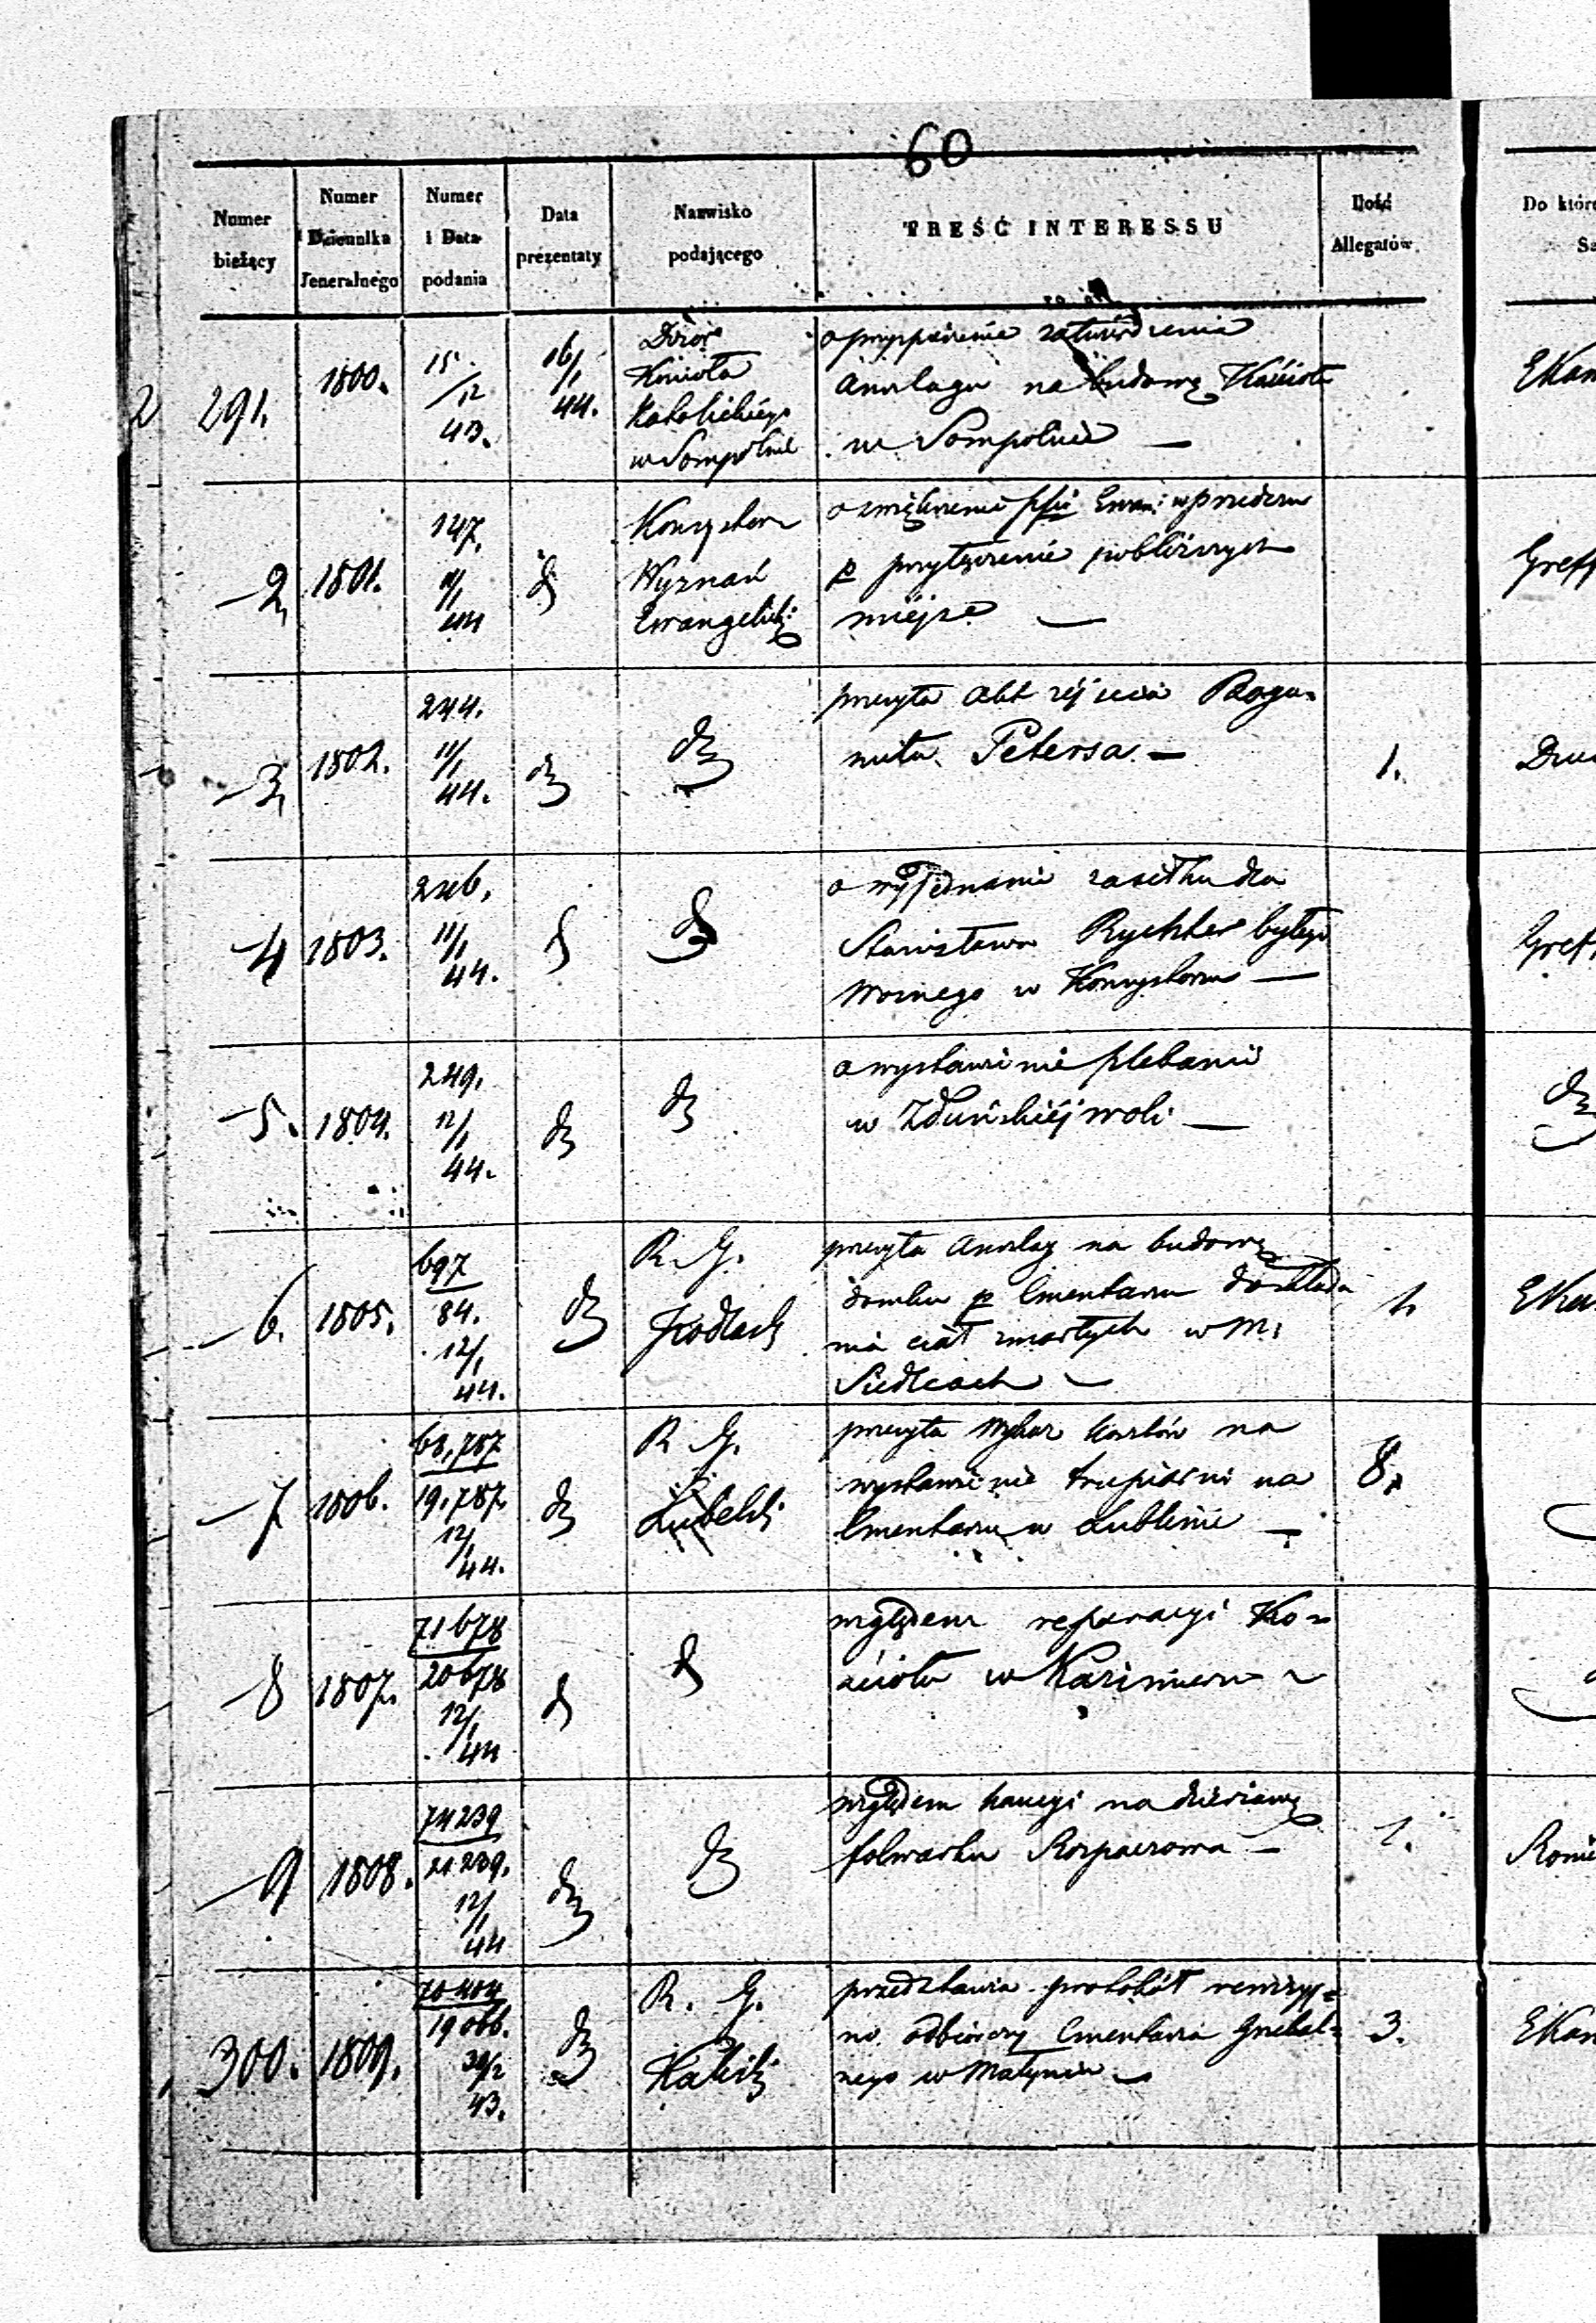 60
Numer bieżący
Numer Dziennika Jeneralnego
Numer i Data podania
Data prezentaty
Nazwisko podającego
TREŚĆ INTERESSU
Ilość Allegatów
Do któr
2
291.
1800.
15
/12
43.
16/1
44.
Dozór
Kościoła
Katolickiego
w Sompolnie
o przyspieszenie zatwierdzenia
Anszlagu na budowę Kościoła
w Sompolnie —
EKan
2
1801.
147.
11/1
44
d
Konsystorz
Wyznań
Ewangelicki:
miejsc —
Greff
3
1802.
244.
11/1
44.
dz
dz
przesyła Akt zejścia Bogu-
miła Petersa —
1.
4
1803.
246.
11/1
44.
d
d
o wyjednanie zasiłku dla
Stanisława Rychter byłego
Woźnego w Konsystorzu —
Greff
5.
1804.
249.
12/1
44.
dz
dz
o wystawienie plebanii
w Zduńskiéj woli —
dz
6.
1805.
697
84.
12/1
44.
dz
R. G.
Podlaski
przesyła Anszlag na budowę
domku p Cmentarzu do składa
nia ciał zmarłych w M.
Siedlcach —
1.
7
1806.
68,787
19.787.
12/1
44.
dz
R. G.
Lubelski
przesyła Wykaz kosztów na
wystawienie trupiarni na
Cmentarzu w Lublinie —
8.
8
1807.
71678
20678
12/1
44
d
d
względem reparacyi Ko-
ścioła w Kazimierzu
9
1808.
74239
21239.
12/1
44
dz
dz
względem kaucyi na dzierżawę
folwarku —
1.
300.
1809.
70404
19066.
43.
dz
R. G.
Kaliski
przedstawia protokół rewizyj-
no odbiorczy Cmentarza Grzebal-
nego w Małyniu —
3.
EKan